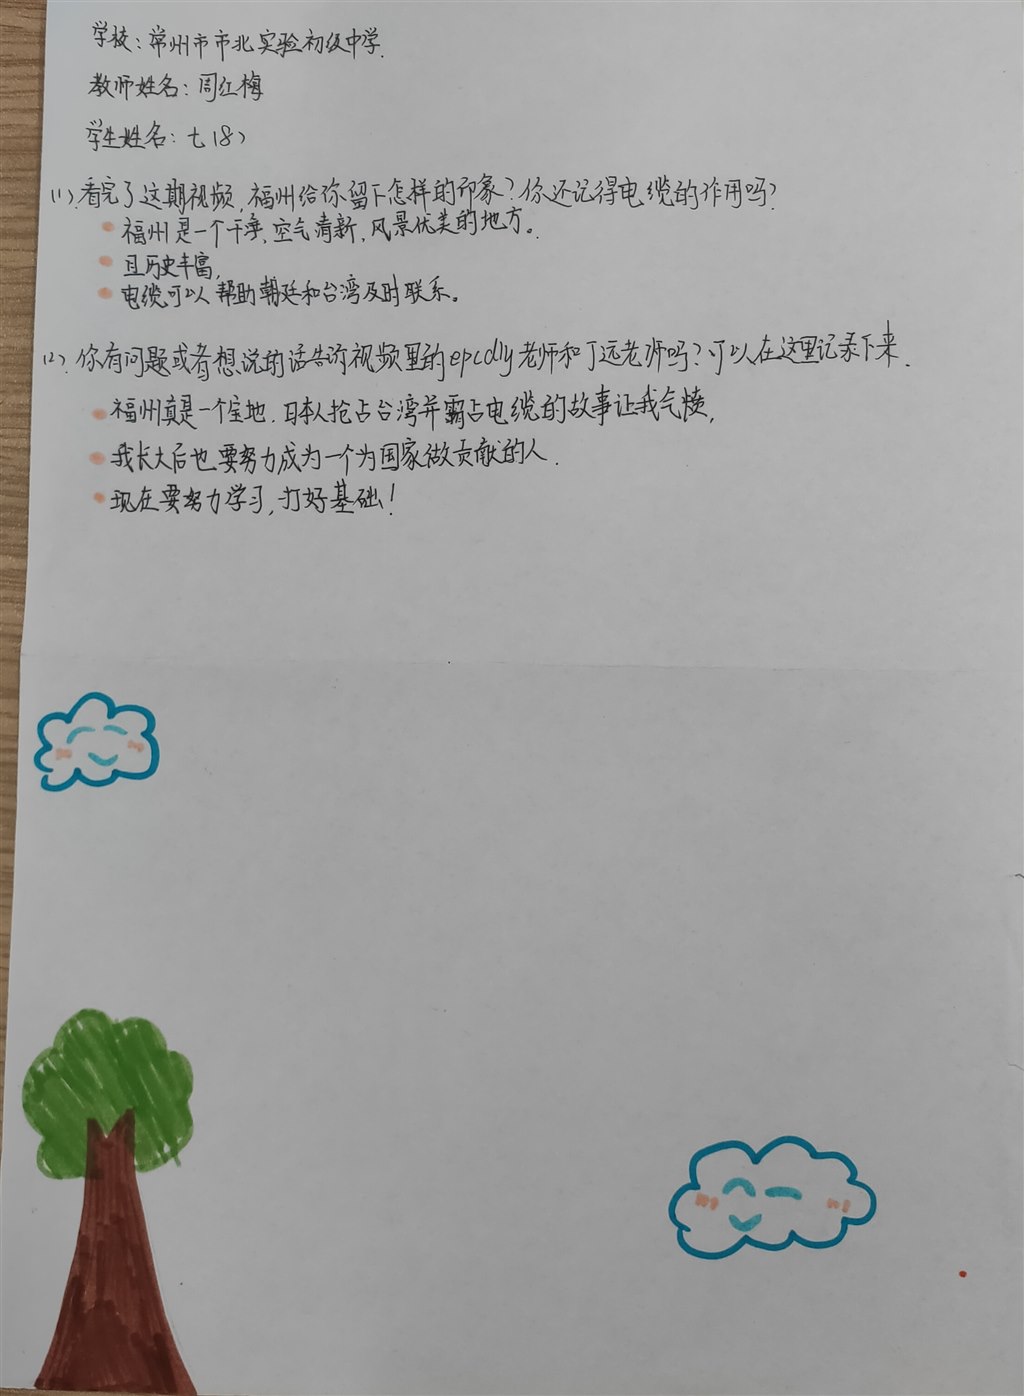 学校：常州市市北实验初级中学.
教师姓名：周红梅
学生姓名：七(8)
(1).看完了这期视频,福州给你留下怎样的印象?你还记得电缆的作用吗?
福州是一个干净,空气清新,风景优美的地方。
且历史丰富,
电缆可以帮助朝廷和台湾及时联系。
(2).你有问题或者想说的话告诉视频里的epcdly老师和丁远老师吗?可以在这里记录下来.
福州真是一个宝地.日本人抢占台湾并霸占电缆的故事让我气愤,
我长大后也要努力成为一个为国家做贡献的人.
现在要努力学习,打好基础!